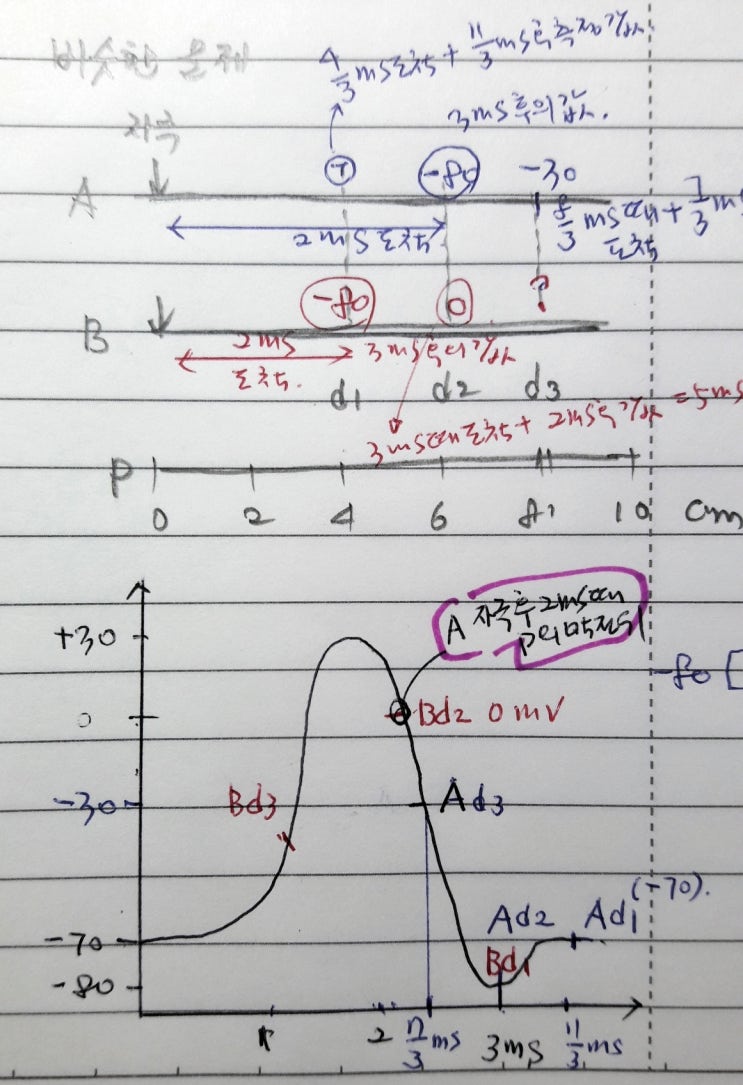 비슷한 문제
4/3 ms도착 + 11/3 ms후 측정값.
자극
3ms후의 값.
A
-80
-30
2ms 도착
8/3 ms때 도착 + 7/3 ms
B
-80
0
?
2ms 도착.
3ms후의 값
d1 d2 d3
3ms때 도착 + 2ms후 값 = 5ms
P
0 2 4 6 8 10 cm
+30
A 자극후 2ms때 P의 막전위
-80 [
0
Bd2 0mV
-30
Bd3
Ad3
(-70).
Ad2 Ad1
-70
Bd1
-80
1 2 7/3 ms 3ms 11/3 ms